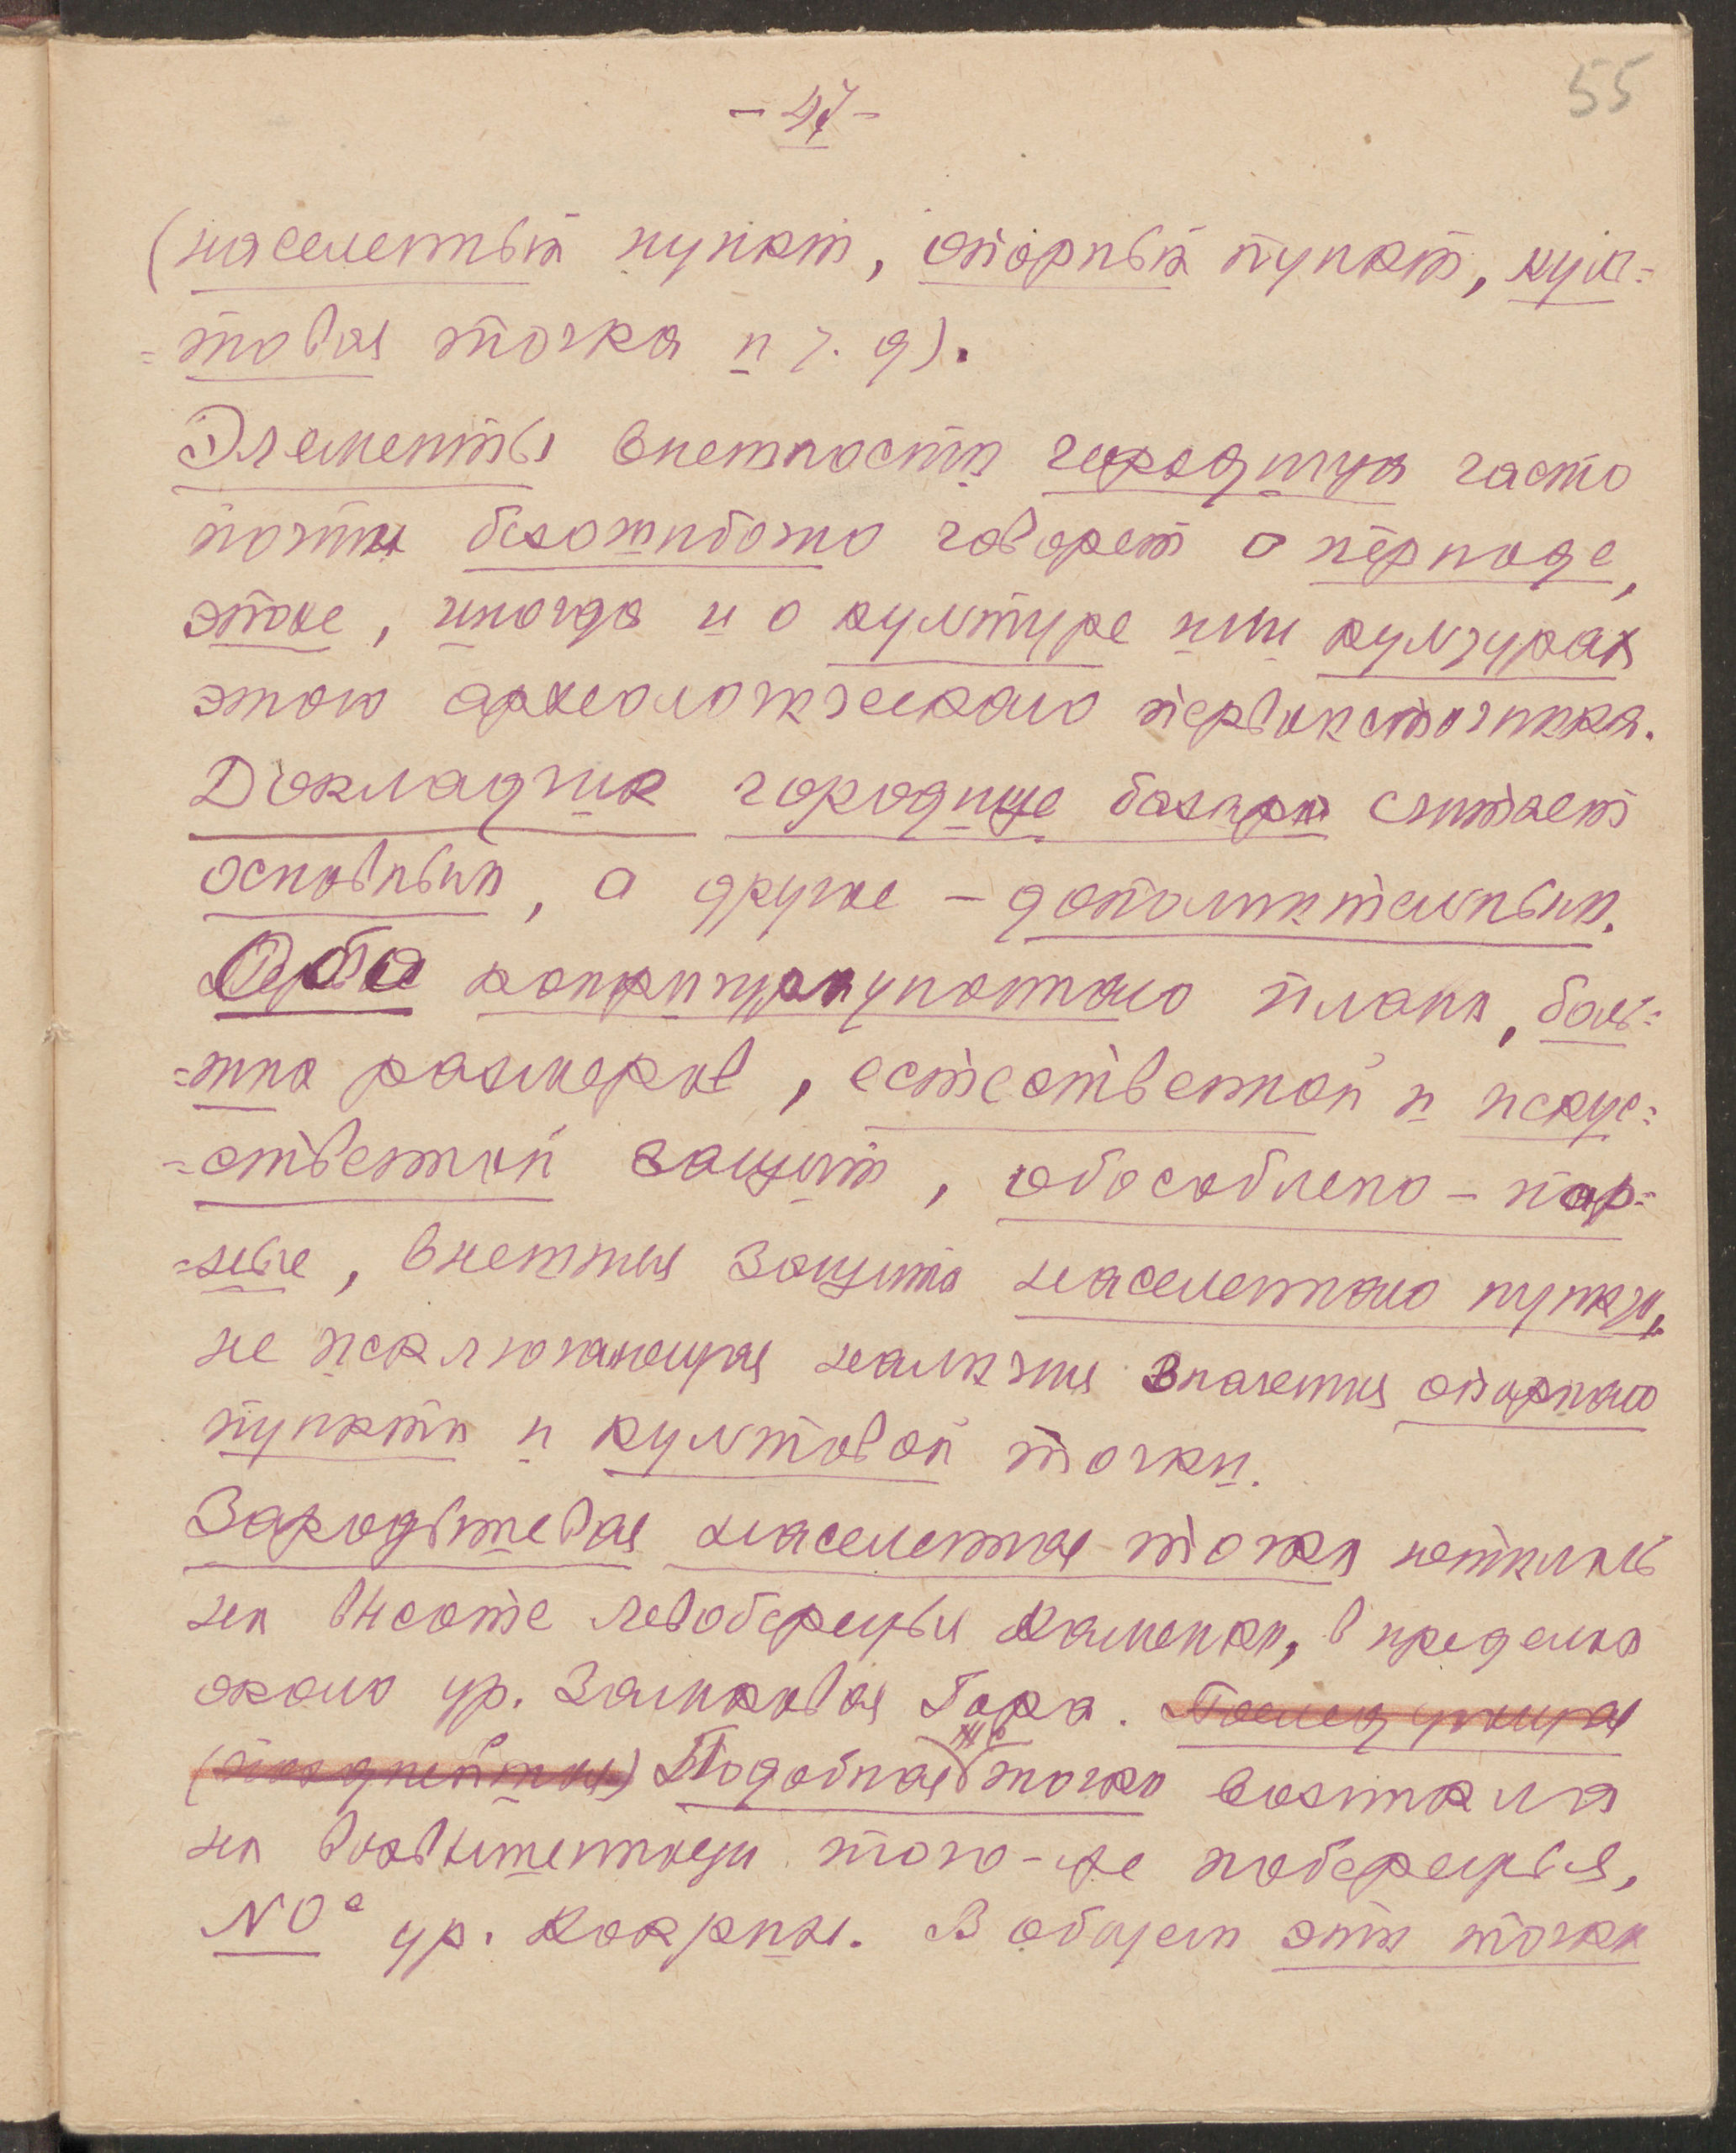 - 47 -
55
(населенный пункт, опорный пункт, куль=
=товая точка и т. д).
Элементы внешности городища часто
почти безошибочно говорят о периоде,
эпохе, иногда и о културе или културах
этого археологического первоисточника.
Докладчик городище базара считает
основным, а другие - дополнительным.
Оба концентрационного плана, боль=
=ших размеров, естественной и искус=
=ственной защит, обособлено-пар=
=ные, внешняя защита населенного пункта,
не исключающая наличия значения опорного
пункта и култовой точки.
Зародышевая населенная точка возникла
на высоте левобережья Каменки, в пределах
около ур. Замковая Гора. Последующая
(позднейшая) Подобная же точка возникла
на возвышенности того-же побережья,
NOе ур. Кокризы. В общем эти точки